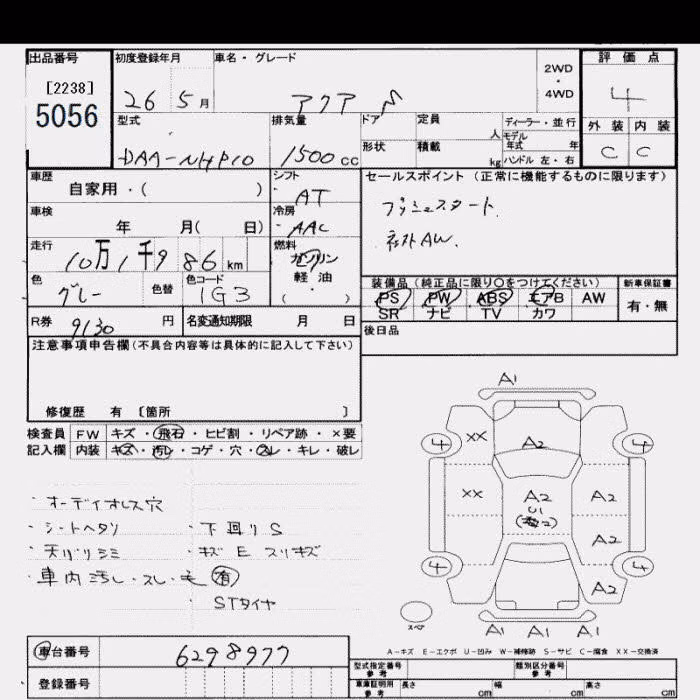 出品番号
[2238]
5056
初度登録年月
26 5月
車名・グレード
アクア
2WD
・
4WD
評価点
4
外装 内装
C C
型式
DAA-NHP10
排気量
1500cc
ドア
定員
人
ディーラー・並行
モデル年式 年
形状
積載
kg
ハンドル 左・右
車歴
自家用・( )
シフト
AT
セールスポイント (正常に機能するものに限ります)
プッシュスタート
社外AW.
車検
年 月( 日)
冷房
AAC
走行
10万1千986km
燃料
ガソリン
軽油
( )
色
グレー
色替
色コード
1G3
装備品 (純正品に限り○をつけてください)
PS PW ABS エアB AW
SR ナビ TV カワ
新車保証書
有・無
R券
9130円
名変通知期限 月 日
後日品
注意事項申告欄(不具合内容等は具体的に記入して下さい)
修復歴 有 〔箇所 〕
検査員記入欄
FW キズ・飛石・ヒビ割・リペア跡・×要
内装 キズ・汚レ・コゲ・穴・スレ・キレ・破レ
・オーディオレス穴
・シートヘタリ
・下回りS
・天バリシミ
・キズ E スリキズ
・車内汚し・スレ・毛 有
・STタイヤ
A1
4 XX A2 4
XX A2 A2
U1
A2
4 4
A2
スペア
A1 A1 A1
A-キズ E-エクボ U-凹み W-補修跡 S-サビ C-腐食 XX-交換済
車台番号
6298977
登録番号
型式指定番号
参考
類別区分番号
参考
車庫証明用
参考
長さ cm 幅 cm 高さ cm